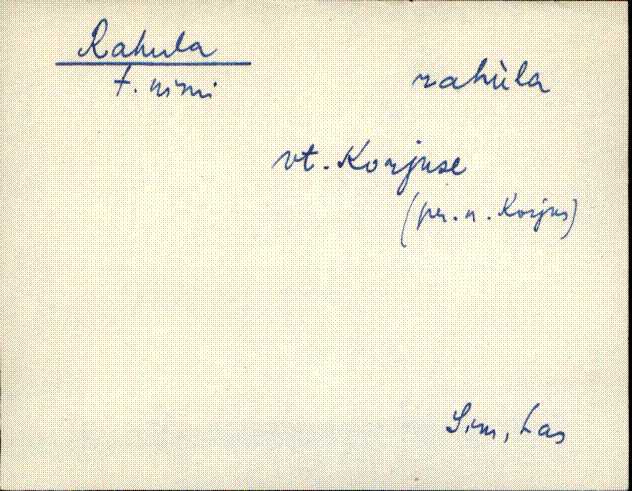 Rahula
t. nimi
rahùla
vt. Korjuse
(pr. n. Korjus)
Sim, Las